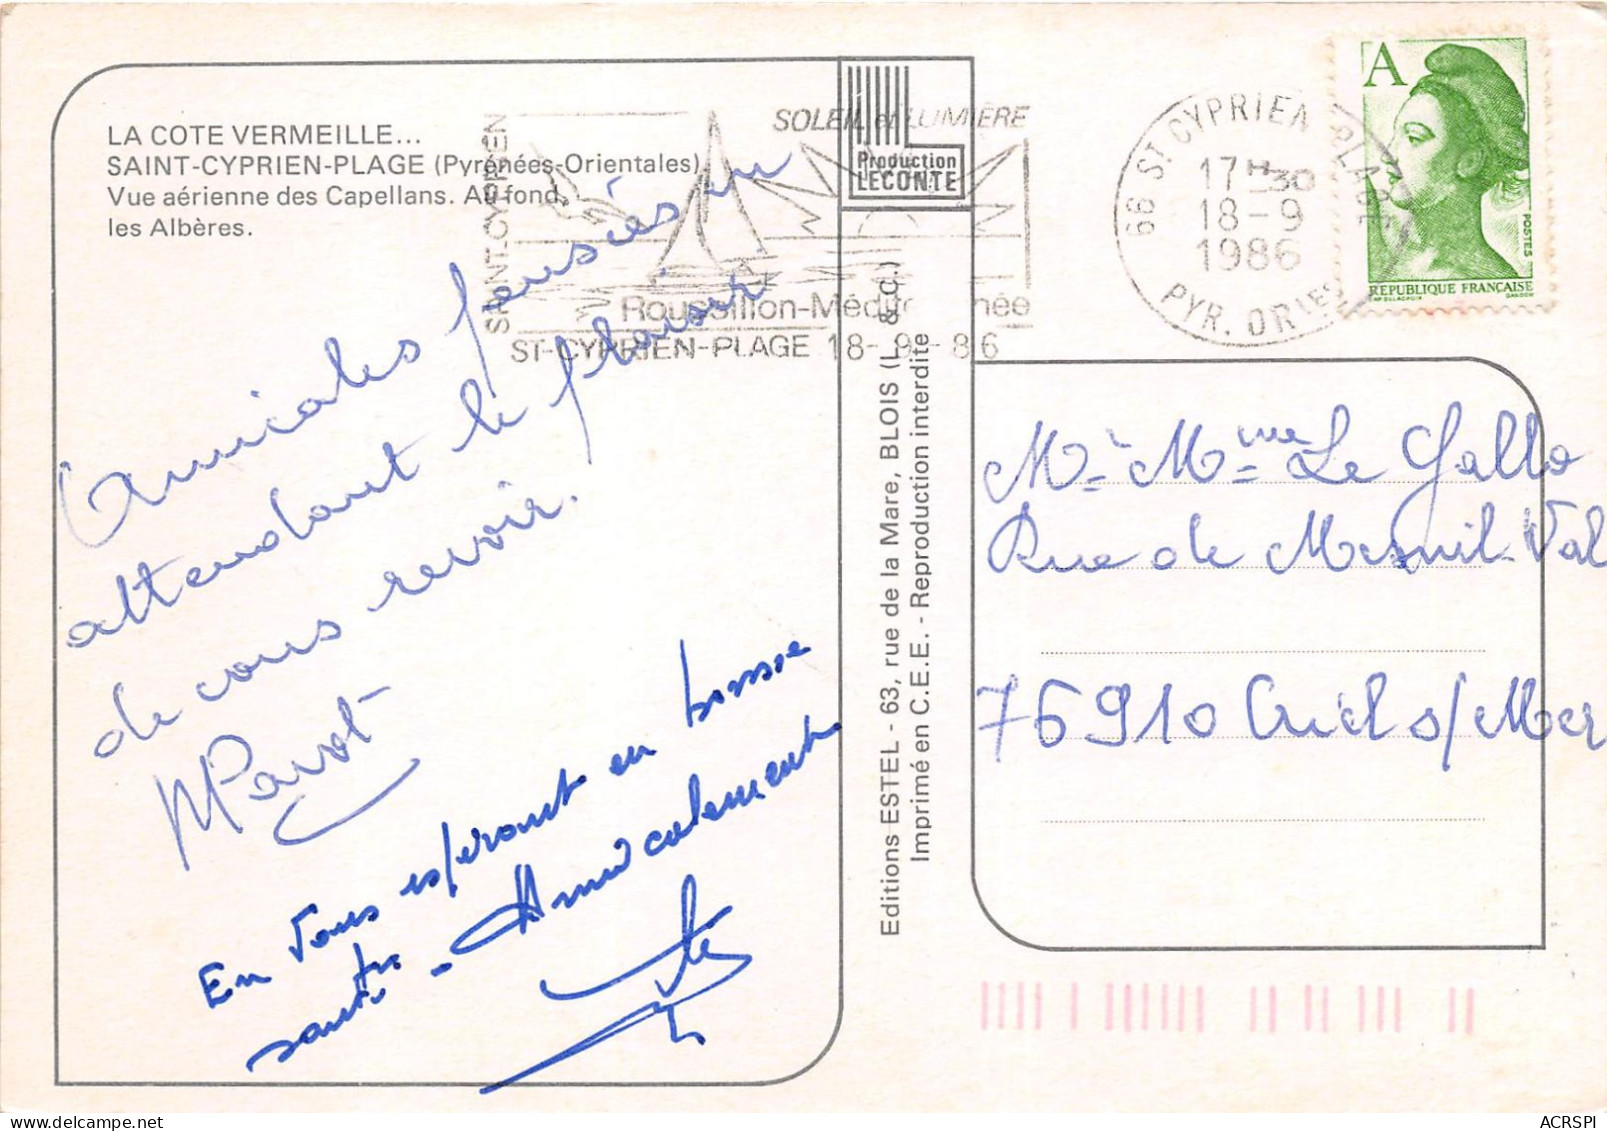 LA COTE VERMEILLE...
SAINT-CYPRIEN-PLAGE (Pyrénées-Orientales)
Vue aérienne des Capellans. Au fond,
les Albères.
Amicales pensées en
attendant le plaisir
de vous revoir.
En vous espérant en bonne
santé - Amicalement
SAINT-CYPRIEN
SOLEIL et LUMIÈRE
Roussillon-Méditerranée
ST-CYPRIEN-PLAGE 18-9-86
Production
LECONTE
Editions ESTEL - 63, rue de la Mare, BLOIS (L. & C.)
Imprimé en C.E.E. - Reproduction interdite
66 ST CYPRIEN PLAGE
17H30
18-9
1986
PYR. ORIES
A
POSTES
RÉPUBLIQUE FRANÇAISE
AP. DELACROIX GANDON
Mr Mme Le Gallo
Rue de Mesnil-Val
76910 Criel s/Mer
ACRSPI